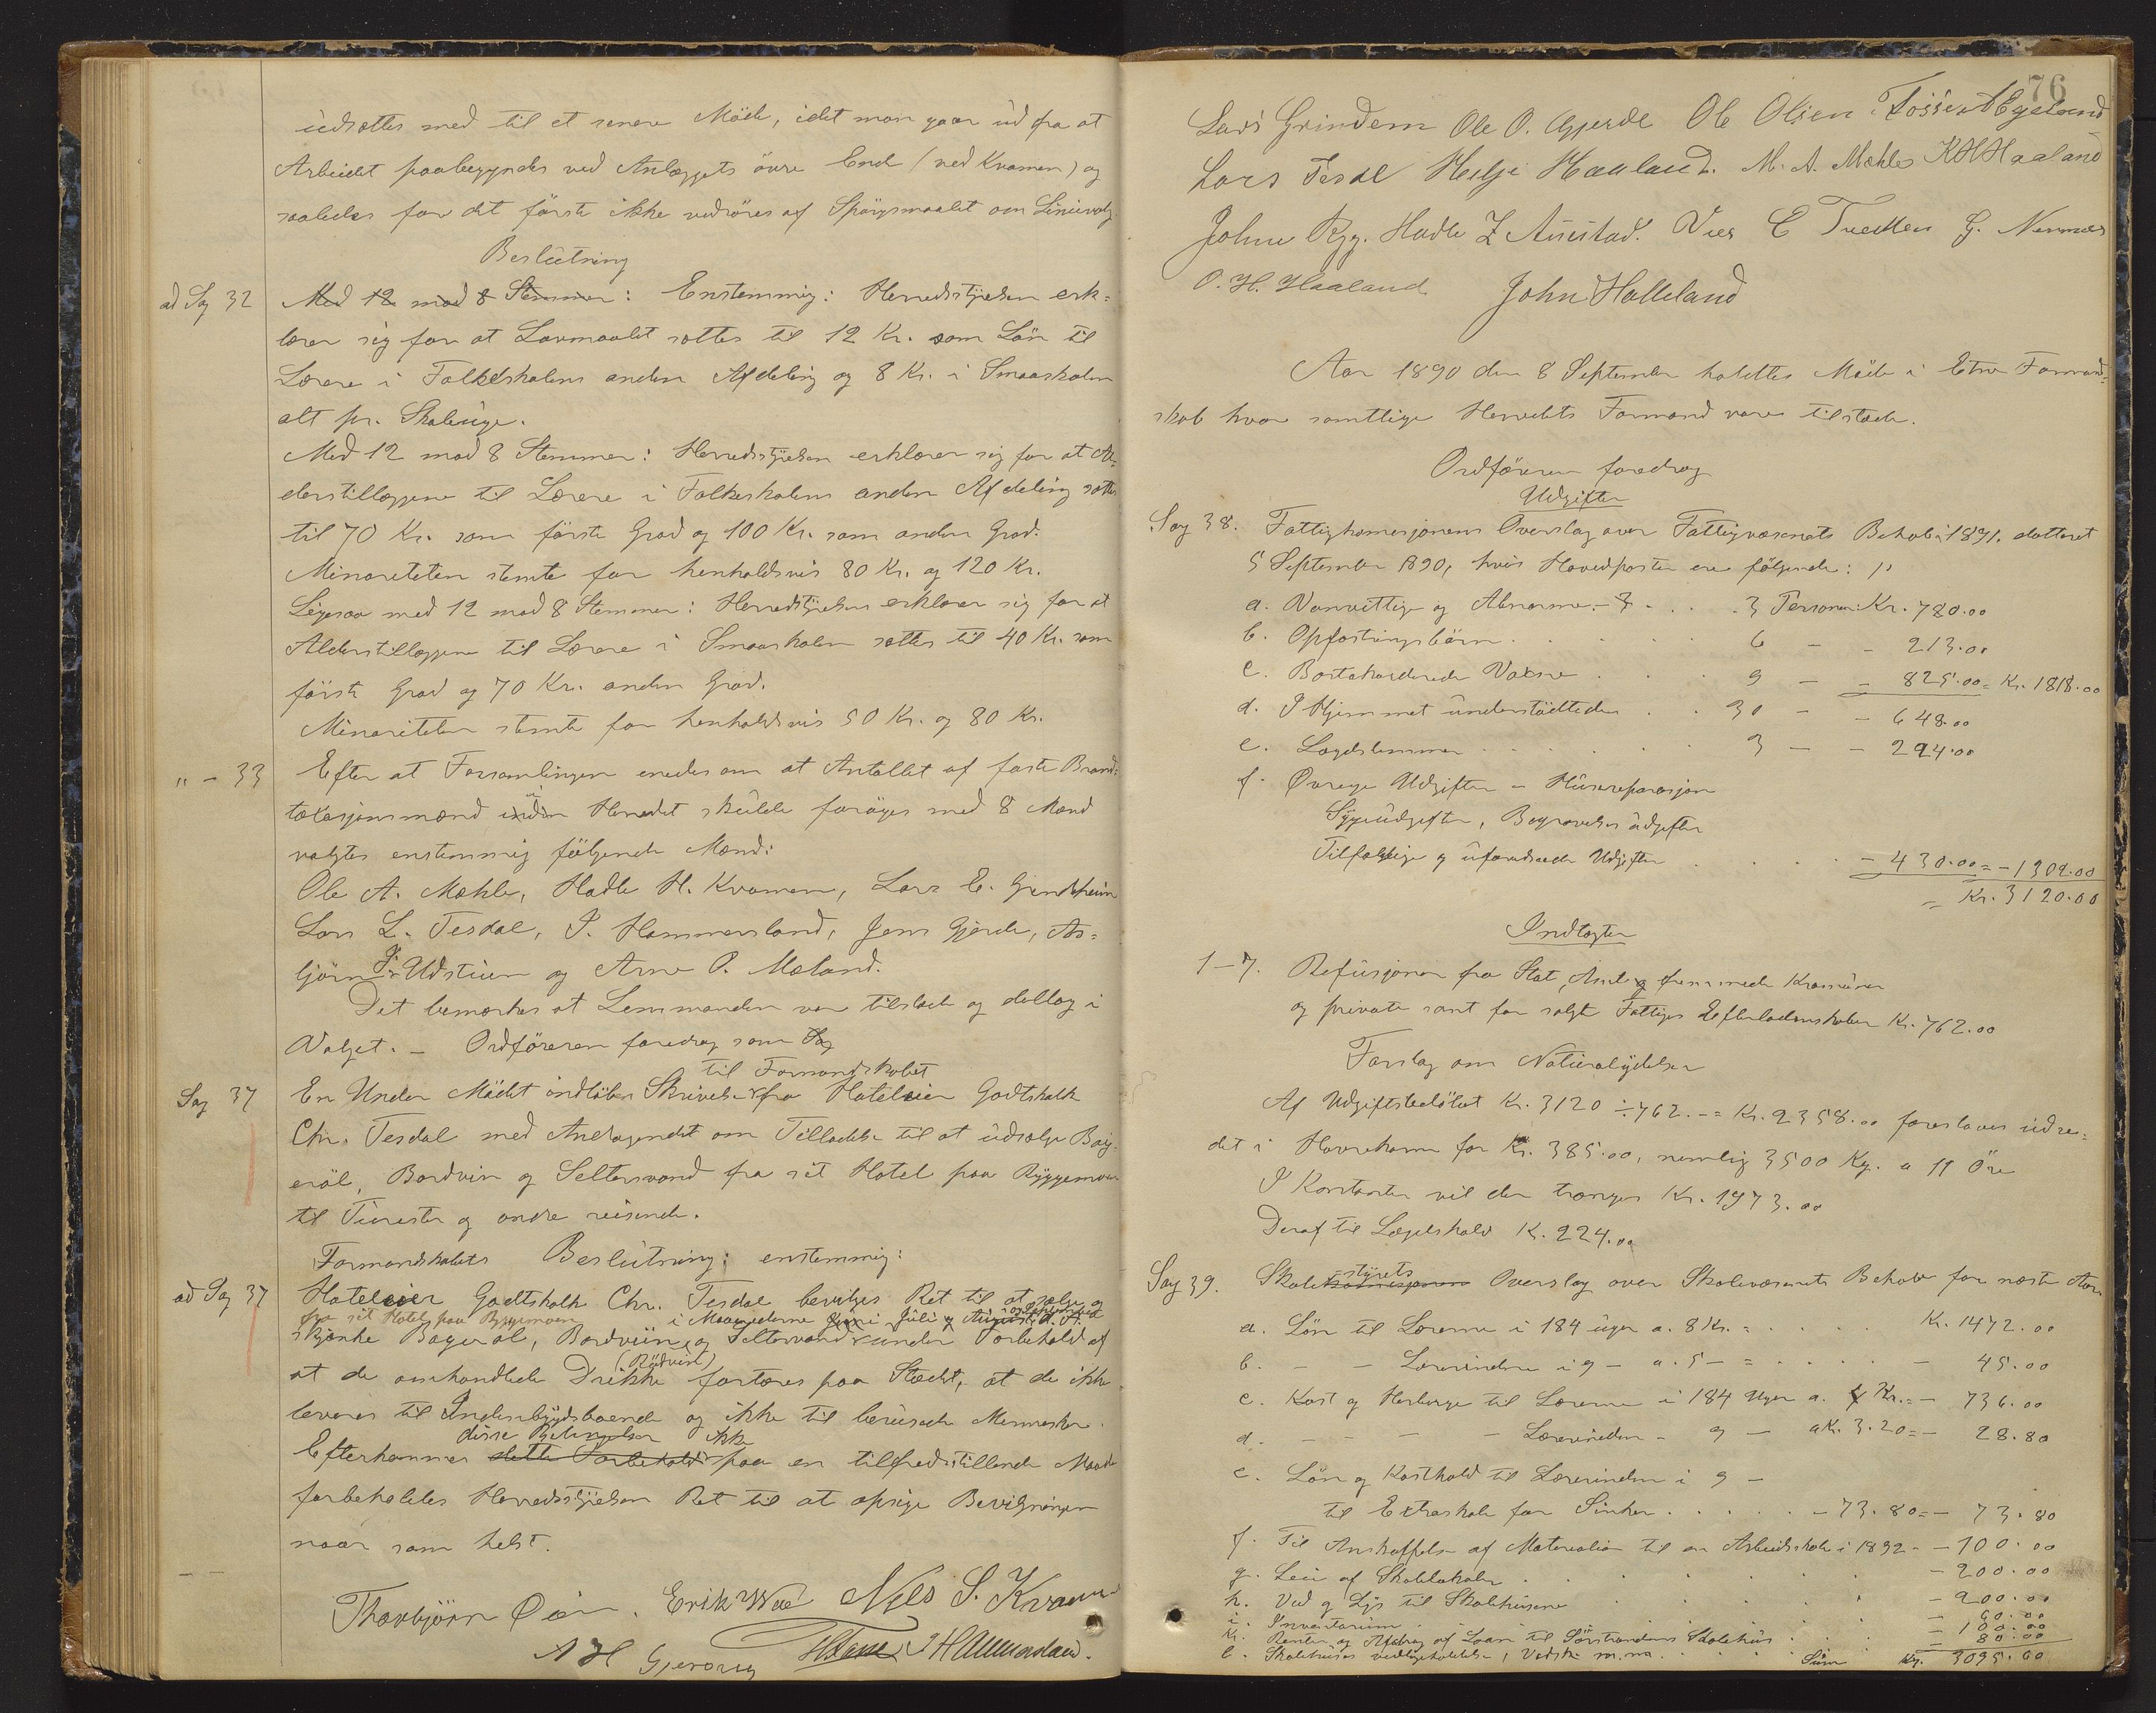 udsættes med til et senere Möde, idet man gaar ud fra at
Arbeidet paabegyndes ved Anlæggets övre Ende (ved Kvamen) og
saaledes for det förste ikke vedröres af Spörgsmaalet om Linievalg.
Beslutning
ad Sag 32 Med 12 mod 8 Stemmer: Enstemmig: Herredsstyrelsen erk=
lærer sig for at Lavmaalet sættes til 12 Kr. som Lön til
Lærere i Folkeskolens anden Afdeling og 8 Kr. i Smaaskolen
alt pr. Skoleuge.
Med 12 mod 8 Stemmer: Herredsstyrelsen erklærer sig for at Al=
derstillæggene til Lærere i Folkeskolens anden Afdeling sættes
til 70 Kr. som förste Grad og 100 Kr. som anden Grad.
Minoriteten stemte for henholdsvis 80 Kr. og 120 Kr.
Ligesaa med 12 mod 8 Stemmer: Herredsstyrelsen erklærer sig for at
Alderstillæggene til Lærere i Smaaskolen sættes til 40 Kr. som
förste Grad og 70 Kr. anden Grad.
Minoriteten stemte for henholdsvis 50 Kr. og 80 Kr.
" - 33 Efter at Forsamlingen enedes om at Antallet af faste Brand=
taxasjonsmænd i Herredet skulde foröges med 8 Mænd
valgtes enstemmig fölgende Mænd:
Ole A. Mæhle, Hadle H. Kvamen, Lars E. Grindheim
Lars L. Tesdal, I. Hammersland, Jens Gjerde, As=
björn J. Udstuen og Arne O. Mæland.
Det bemærkes at Lensmanden var tilstede og deltog i
Valget. - Ordföreren foredrog som Sag
til Formandskabet
Sag 37 En Under Mödet indlöben Skrivelse fra Hoteleier Godtskalk
Chr. Tesdal med Andragendet om Tilladelse til at udsælge Bay=
eröl, Bordvin og Seltersvand fra sit Hotel paa Ryggemoen
til Turister og andre reisende.
Formandskabets Beslutning: enstemmig:
ad Sag 37 Hoteleier Godtskalk Chr. Tesdal bevilges Ret til at sælge og
fra sit Hotel paa Ryggemoen i Maanederne Juni Juli og August
skjænke Bayeröl, Bordviin og Seltervand under Forbehold af
(Rödvin)
at de omhandlede Drikke fortæres paa Stedet, at de ikke
leveres til Indenbygdsboende og ikke til berusede Mennesker.
disse Betingelser ikke
Efterkommes dette Forbehold paa en tilfredsstillende Maade
forbeholdes Herredsstyrelsen Ret til at opsige Bevilgningen
naar som helst.
Thorbjörn Öien. Erik Nils S. Kvamen
A H Gjerde I Hammersland.
76
Lars Grindem Ole O. Gjerde Ole Olsen
Lars Tesdal Helje Haaland. M. A. Mæhle K H Haaland
John Ryg. Hadle Z Austad. G.
O. H. Haaland John Halleland
Aar 1890 den 8 September holdtes Möde i Etne Formand=
skab hvor samtlige Herredets Formænd vare tilstede.
Ordföreren foredrog
Udgifter
Sag 38. Fattigkomisjonens Overslag over Fattigvæsenets Behov i 1891. datteret
5 September 1890, hvis Hovedposter ere fölgende:
a. Vanvittige og Abnorme - 3 . . . 3 Personer Kr. 780.00
b. Opfostringsbörn . . . . 6 - - 213.00
c. Bortakorderede Voxne . . . 9 - - 825.00 = Kr. 1818.00
d. I Hjemmet understöttede . . 30 - - 648.00
e. Lægdslemmer . . . . . 3 - - 224.00
f. Övrige Udgifter - Husreparasjon
Sygeudgifter, Begravelses udgifter
Tilfældige og uforudseede Udgifter . . . . - 430.00 = - 1302.00
= Kr. 3120.00
Indtægter
1-7. Refusjoner fra Stat, Amt og fremmede Kommuner
og private samt for solgte Fattiges Efterladenskaber Kr. 762.00
Forslag om Naturalydelser
Af Udgiftsbelöbet Kr. 3120 ÷ 762.- = Kr. 2358.00 foreslaaes udre=
det i Havrekorn for Kr. 385.00, nemlig 3500 Kg. a 11 Öre
I Kontanter vil der trænges Kr. 1973.00
Deraf til Lægdshold K. 224.00
Sag 39. Skolestyrets Overslag over Skolevæsenets Behov for næste Aar
a. Lön til Lærerne i 184 uger a. 8 Kr. = . . . . Kr. 1472.00
b. - - Lærerinderne i 9 - a. 5 - = . . . . - 45.00
c. Kost og Herberge til Lærerne i 184 Uger a. 4 Kr. = - 736.00
d. - - - - Lærerinden - 9 - a Kr. 3.20 = - 28.80
e. Lön og Kosthold til Lærerinden i 9 -
til Extraskole for Sinker . . . . - 73.80 = - 73.80
f. Til Anskaffelse af Materialier til en Arbeidsskole i 1892 - - 100.00
g. Leie af Skolelokaler . . . . . . - 200.00
h. Ved og Lys til Skolehusene . . . . - 200.00
i. Inventarium . . . . - 60.00
k. Renter og Afdrag af Laan til Sörstrandens Skolehus . . . - 100.00
l. Skolehuses vedligeholdelse, Vadsk m.m. . . . . - 80.00
Sum Kr. 3095.60